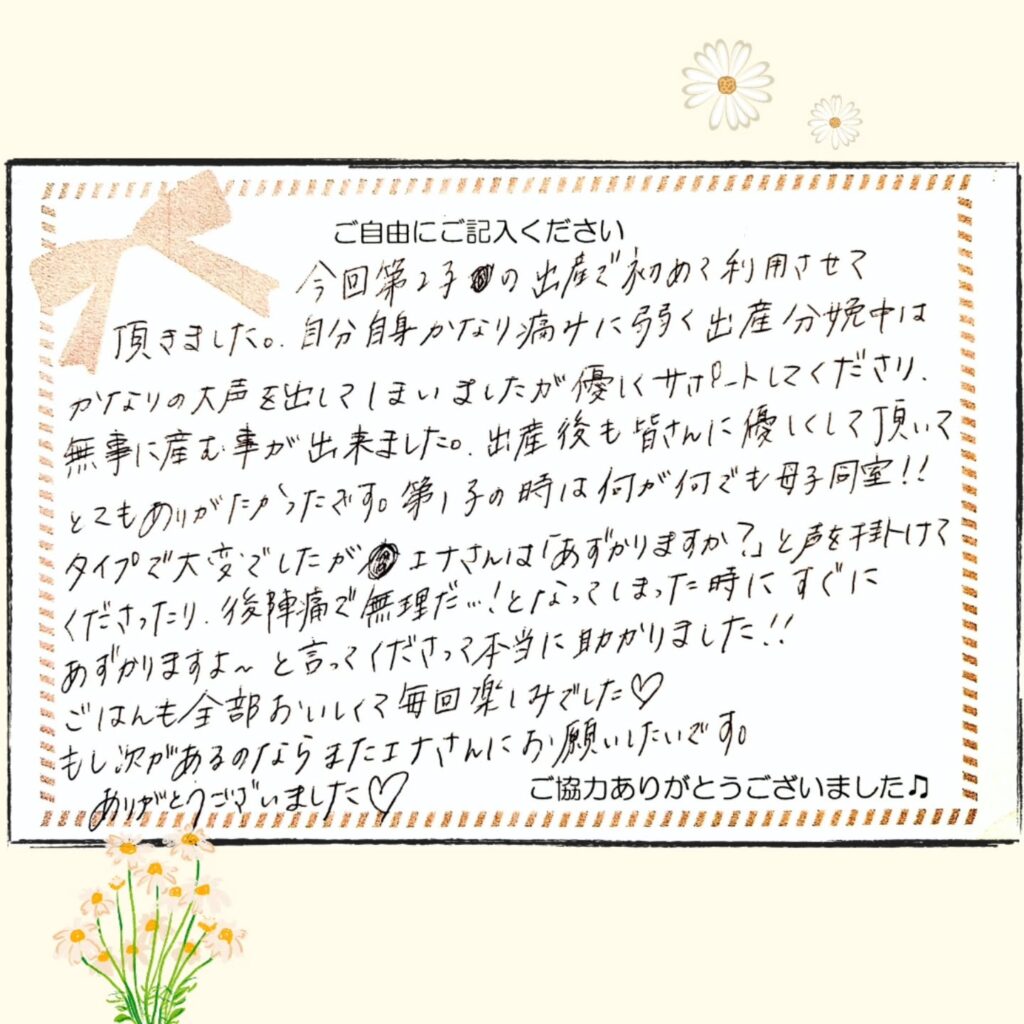 ご自由にご記入ください
今回第2子の出産で初めて利用させて
頂きました。自分自身かなり痛みに弱く出産分娩中は
かなりの大声を出してしまいましたが優しくサポートしてくださり、
無事に産む事が出来ました。出産後も皆さんに優しくして頂いて
とてもありがたかったです。第1子の時は何が何でも母子同室!!
タイプで大変でしたが エナさんは「あずかりますか?」と声を掛けて
くださったり、後陣痛で無理だ…!となってしまった時にすぐに
あずかりますよ～と言ってくださって本当に助かりました!!
ごはんも全部おいしくて毎回楽しみでした♡
もし次があるのならまたエナさんにお願いしたいです。
ありがとうございました♡
ご協力ありがとうございました♫